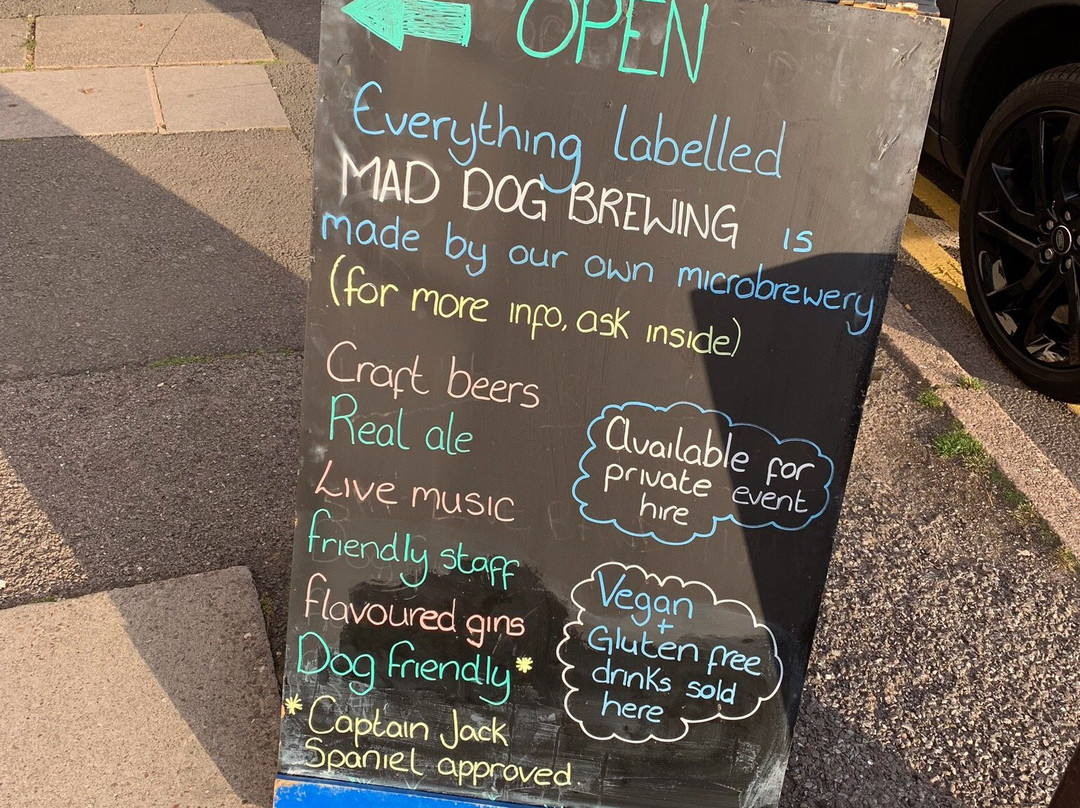 OPEN
Everything labelled
MAD DOG BREWING is
made by our own microbrewery
(for more info, ask inside)
Craft beers
Real ale
Live music
friendly staff
flavoured gins
Dog friendly*
*Captain Jack
Spaniel approved.
Available for
private event
hire
Vegan
+
Gluten free
drinks sold
here